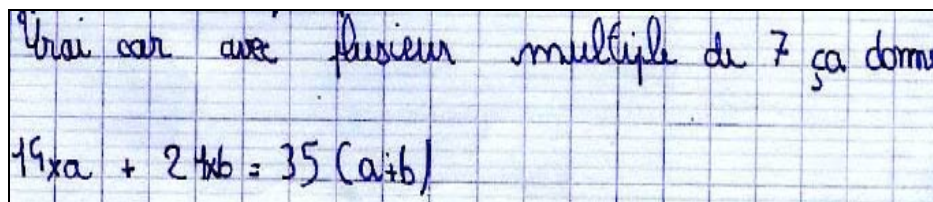 Vrai car avec plusieur multiple de 7 ça donne
14xa + 21xb = 35 (a+b)